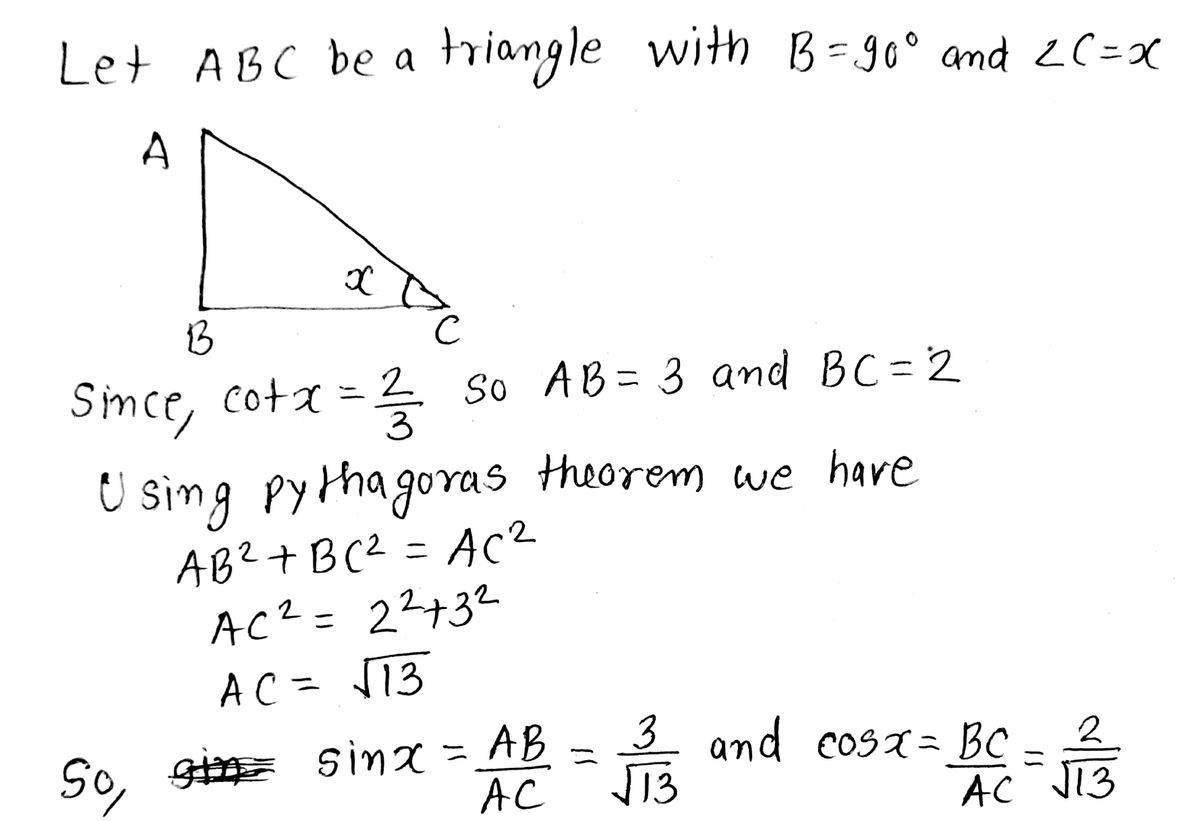 Let ABC be a triangle with B = 90° and ∠C = x
A
x
B
C
Since, cotx = 2/3 so AB = 3 and BC = 2
Using pythagoras theorem we have
AB² + BC² = AC²
AC² = 2²+3²
AC = √13
So, sin sinx = AB/AC = 3/√13 and cosx = BC/AC = 2/√13